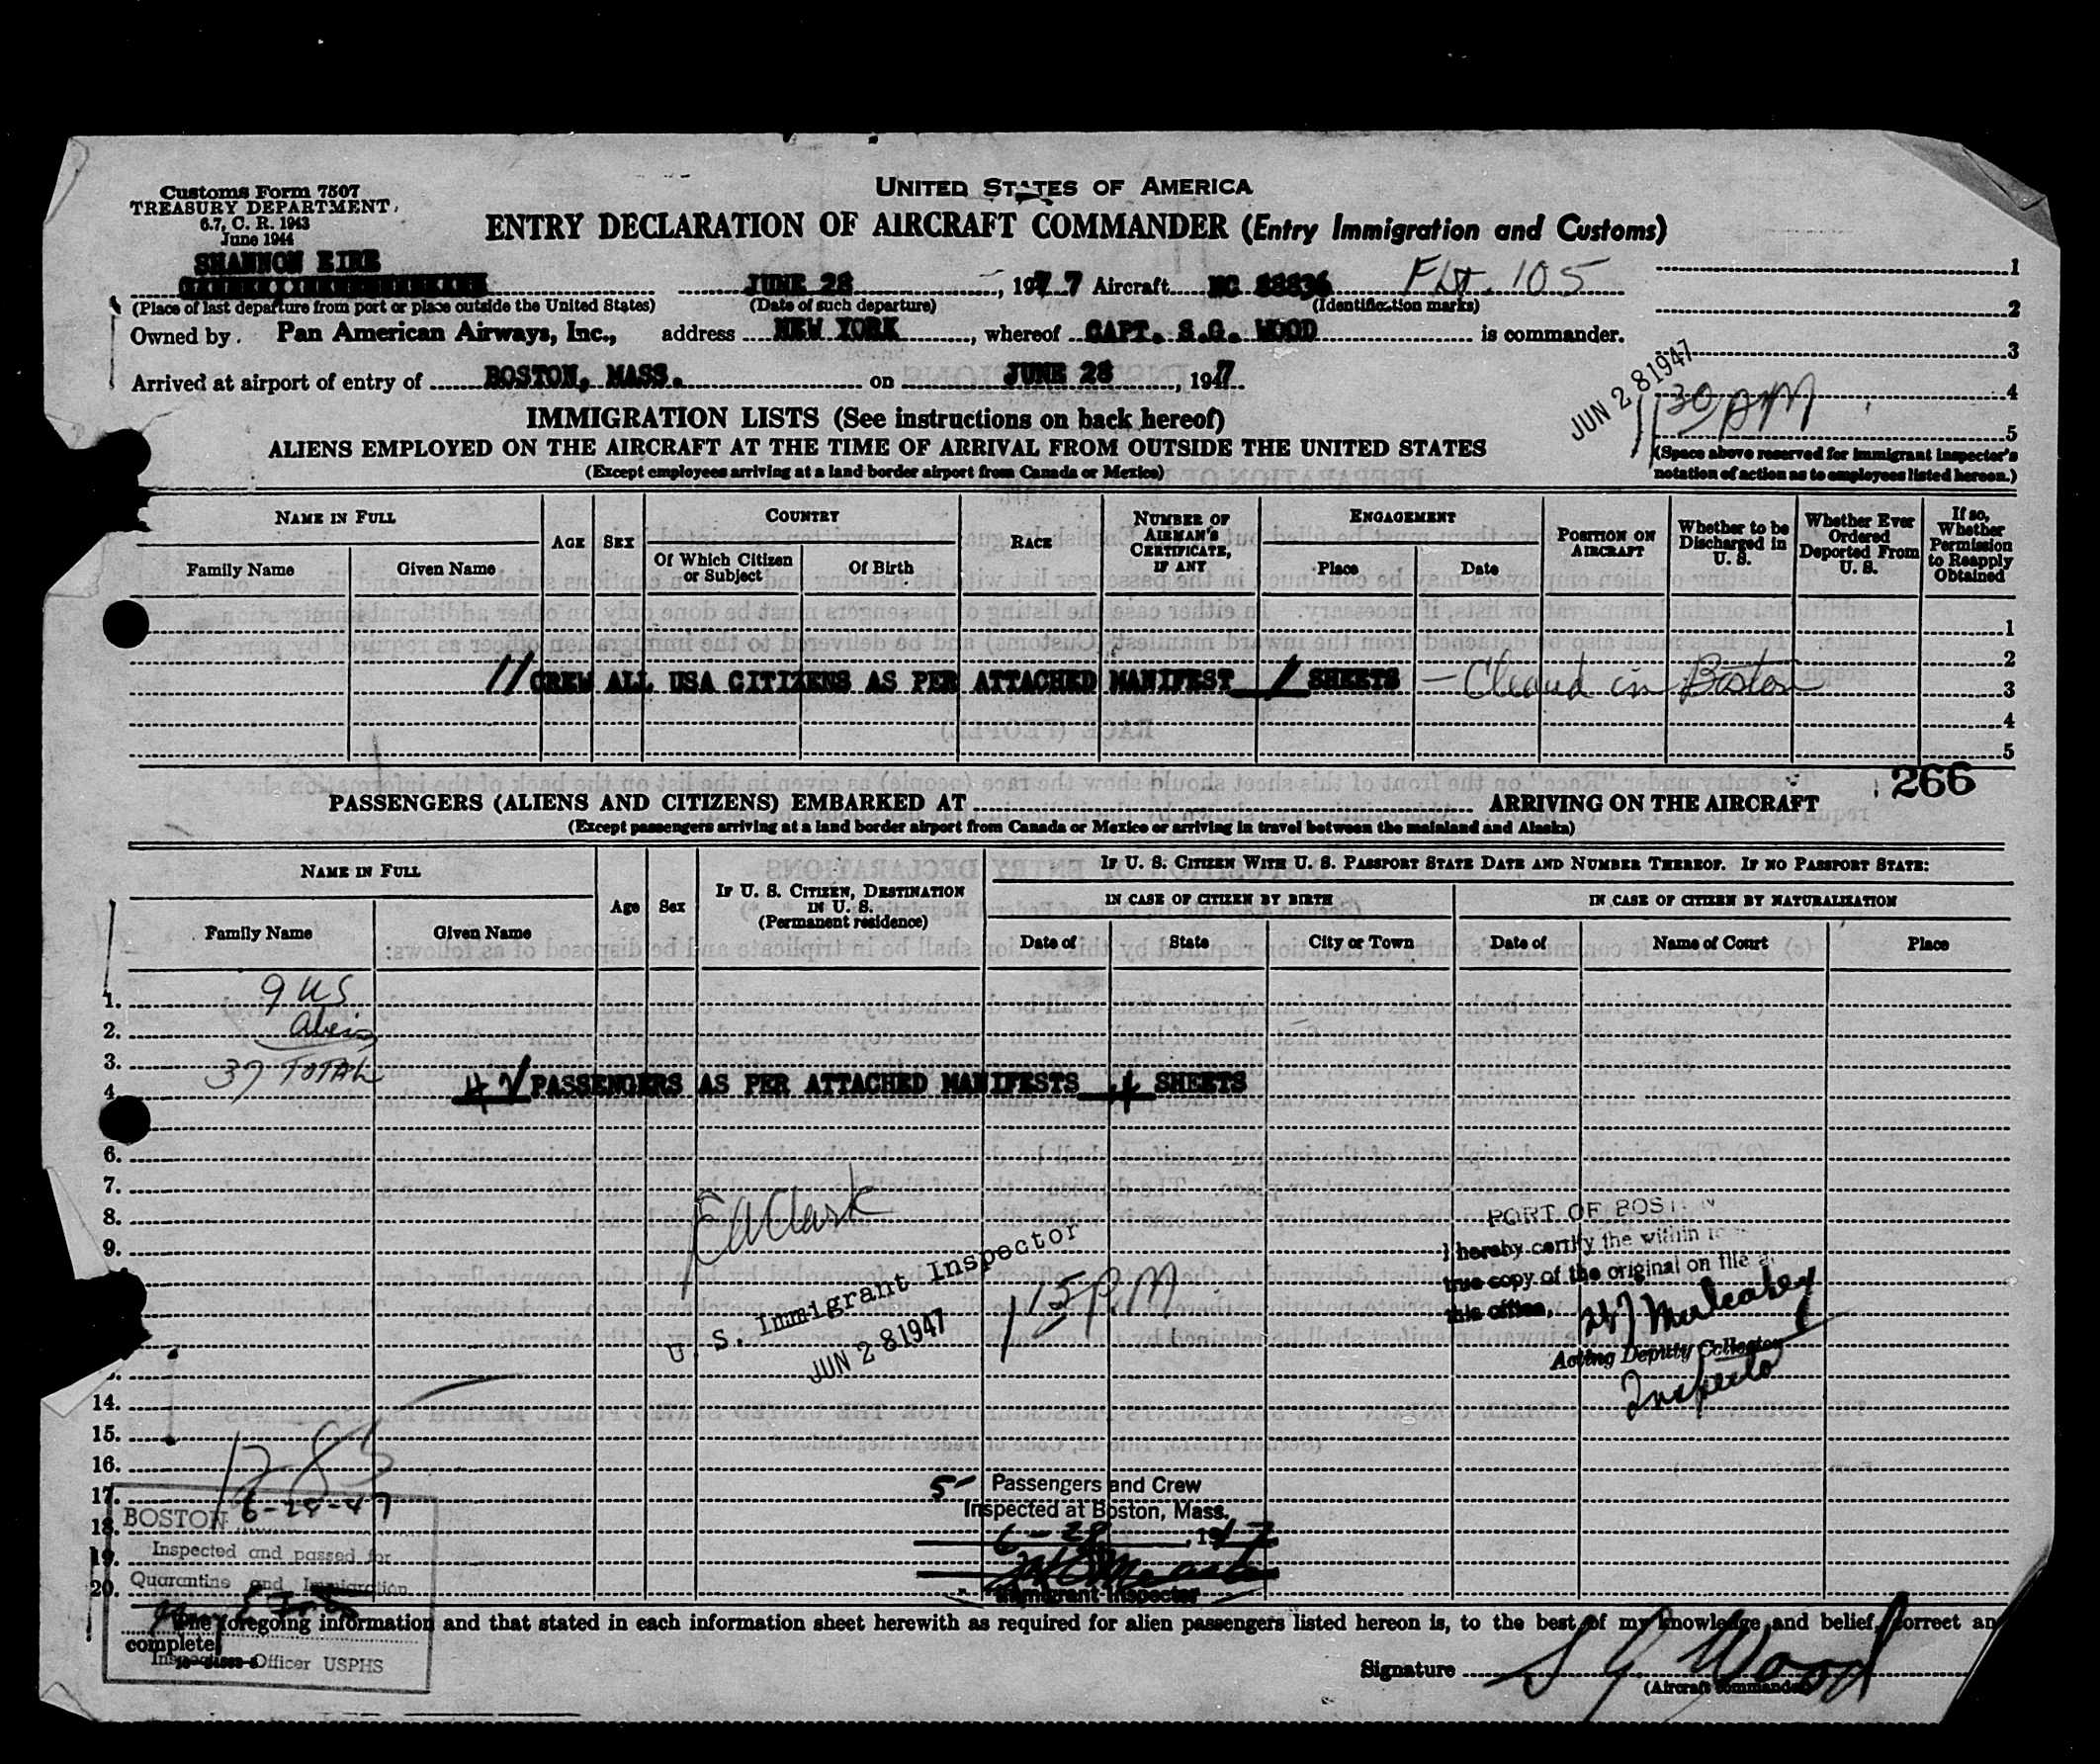 Customs Form 7507
TREASURY DEPARTMENT
6.7, C. R. 1943
June 1944
UNITED STATES OF AMERICA
ENTRY DECLARATION OF AIRCRAFT COMMANDER (Entry Immigration and Customs)
SHANNON EIRE
JUNE 28, 1947 Aircraft NC 88836 Flt. 105
(Place of last departure from port or place outside the United States) (Date of such departure) (Identification marks)
Owned by Pan American Airways, Inc., address NEW YORK, whereof CAPT. S.G. WOOD is commander.
Arrived at airport of entry of BOSTON, MASS. on JUNE 28, 1947
1
2
3
4
5
JUN 28 1947
1130 PM
(Space above reserved for immigrant inspector's
notation of action as to employees listed hereon.)
IMMIGRATION LISTS (See instructions on back hereof)
ALIENS EMPLOYED ON THE AIRCRAFT AT THE TIME OF ARRIVAL FROM OUTSIDE THE UNITED STATES
(Except employees arriving at a land border airport from Canada or Mexico)
NAME IN FULL
Family Name
Given Name
AGE
SEX
COUNTRY
Of Which Citizen
or Subject
Of Birth
RACE
NUMBER OF
AIRMAN'S
CERTIFICATE,
IF ANY
ENGAGEMENT
Place
Date
POSITION ON
AIRCRAFT
Whether to be
Discharged in
U. S.
Whether Ever
Ordered
Deported From
U. S.
If so,
Whether
Permission
to Reapply
Obtained
1
2
11 CREW ALL USA CITIZENS AS PER ATTACHED MANIFEST 1 SHEETS - Cleared in Boston 3
4
5
266
PASSENGERS (ALIENS AND CITIZENS) EMBARKED AT ARRIVING ON THE AIRCRAFT
(Except passengers arriving at a land border airport from Canada or Mexico or arriving in travel between the mainland and Alaska)
NAME IN FULL
Family Name
Given Name
Age
Sex
IF U. S. CITIZEN, DESTINATION
IN U. S.
(Permanent residence)
IF U. S. CITIZEN WITH U. S. PASSPORT STATE DATE AND NUMBER THEREOF. IF NO PASSPORT STATE:
IN CASE OF CITIZEN BY BIRTH
Date of
State
City or Town
IN CASE OF CITIZEN BY NATURALIZATION
Date of
Name of Court
Place
1. 9 US
2.
3. 37 TOTAL
4. PASSENGERS AS PER ATTACHED MANIFESTS 4 SHEETS
6.
7.
8.
9.
14.
15.
16.
17.
18.
19.
20.
E A Clark
U. S. Immigrant Inspector
JUN 28 1947
115 PM
PORT OF BOST N
I hereby certify the within
true copy of the original on file
this office,
Mulcahey
Acting Deputy Collector
BOSTON 6-28-47
Inspected and passed for
Quarantine and Immigration
Officer USPHS
5 Passengers and Crew
Inspected at Boston, Mass.
6-28, 1947
Immigrant Inspector
The foregoing information and that stated in each information sheet herewith as required for alien passengers listed hereon is, to the best of my knowledge and belief, correct an
complete
Signature S G Wood
(Aircraft commander)